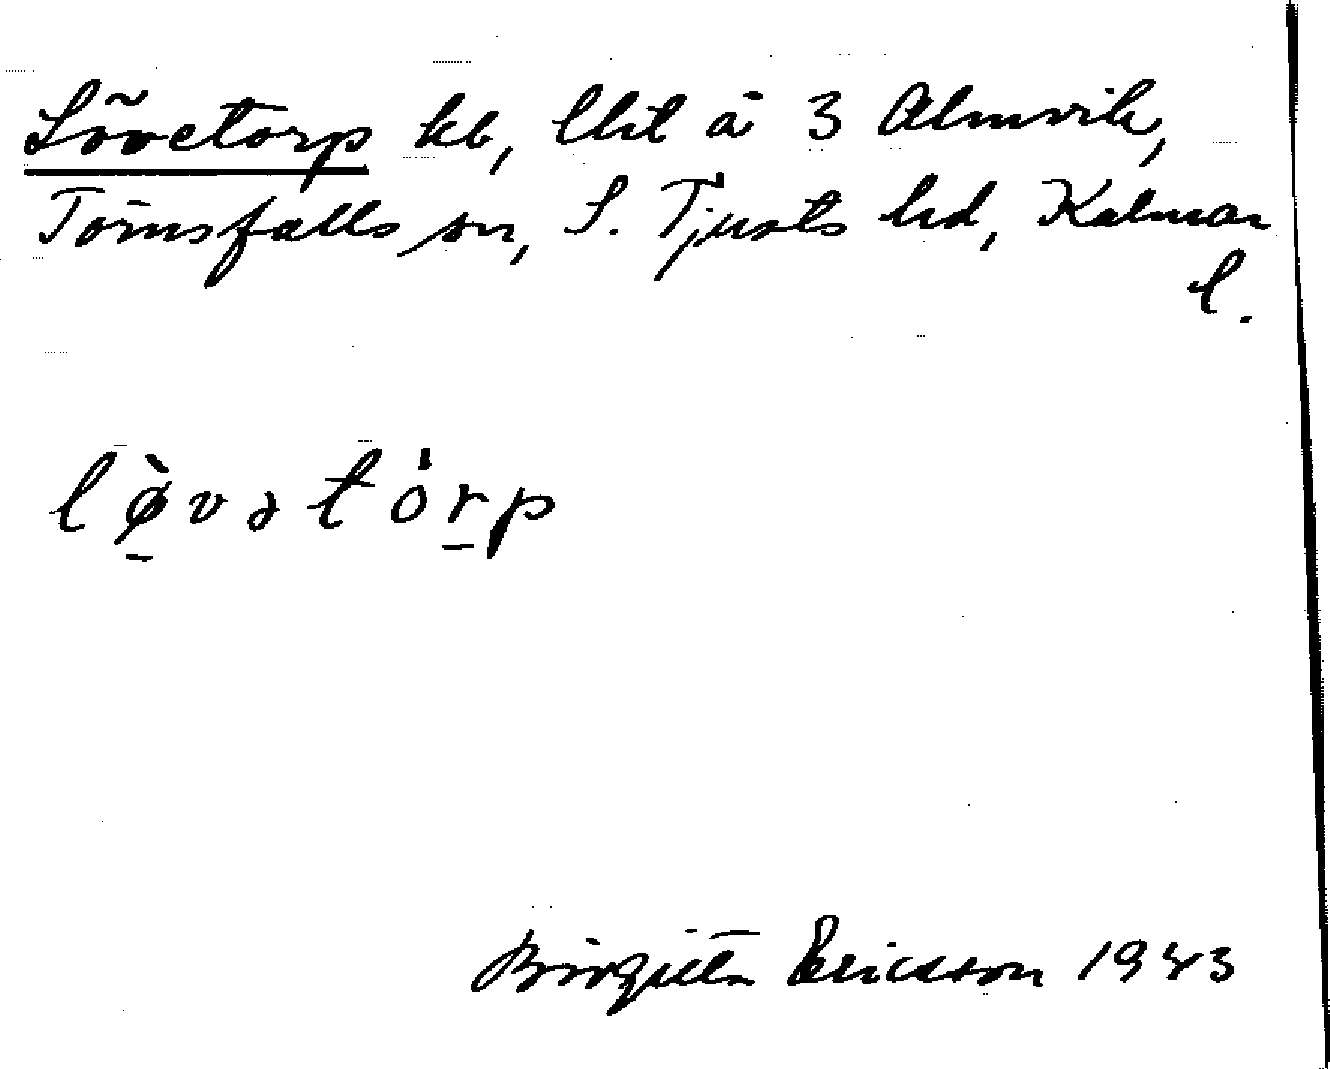 Lövetorp kb, lht å 3 Almvik,
Törnsfalls sn, S. Tjusts hd, Kalmar
l.
lø̀vətȯrp
Birgitta Ericsson 1943